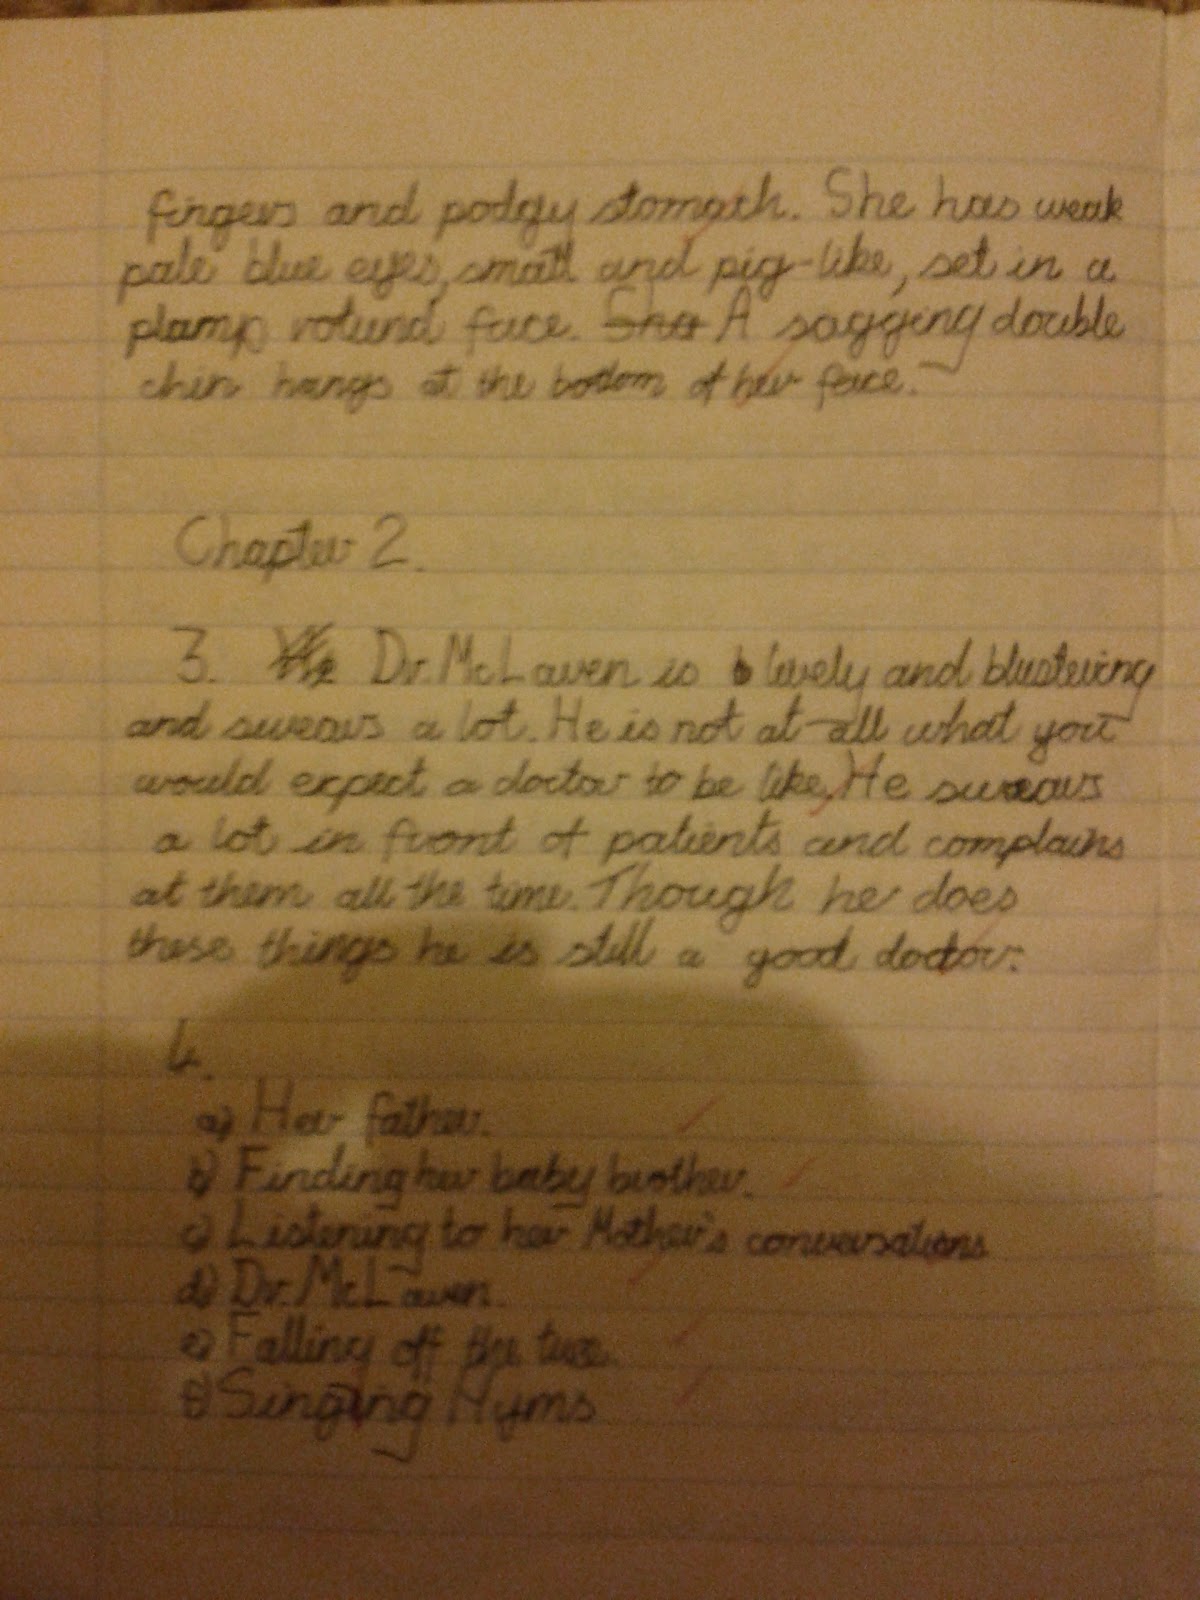 fingers and podgy stomach. She has weak
pale blue eyes, small and pig-like, set in a
plamp rotund face. She A sagging double
chin hangs at the bottom of her face.
Chapter 2.
3. He Dr. McLaren is b lively and blustering
and swears a lot. He is not at all what you
would expect a doctor to be like, He swears
a lot in front of patients and complains
at them all the time. Though he does
these things he is still a good doctor.
4.
a) Her father.
b) Finding her baby brother.
c) Listening to her Mother's conversations
d) Dr. McLaren.
e) Falling off the tree.
f) Singing Hyms